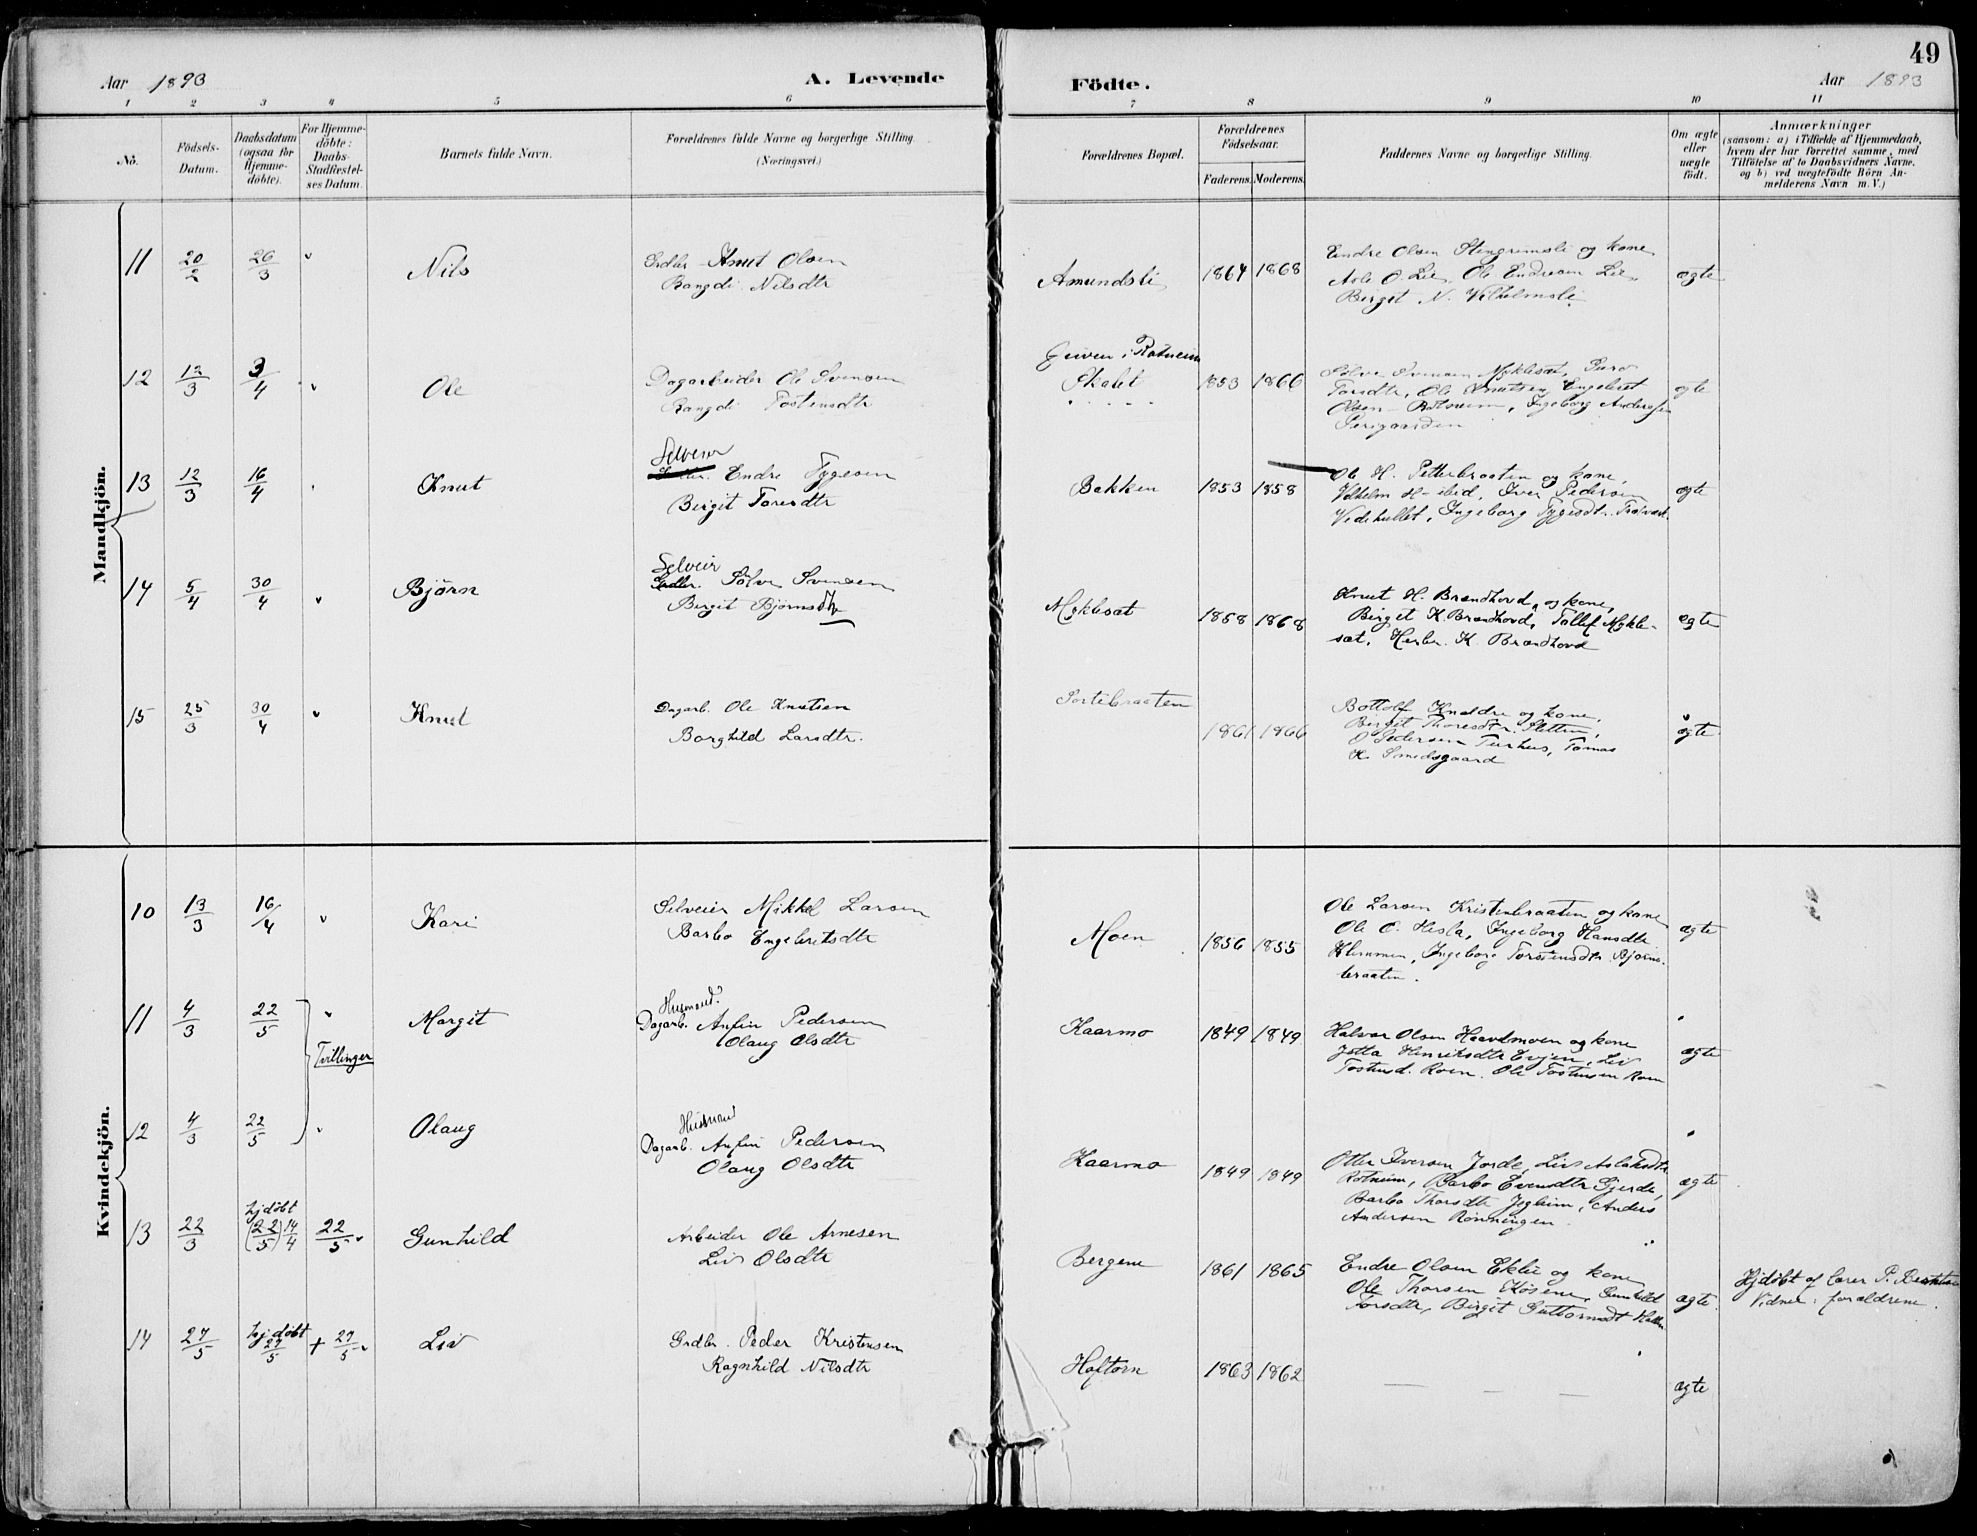 49
Aar 1893 A. Levende Födte. Aar 1893
1 2 3 4 5 6 7 8 9 10 11
No.
Födsels-
Datum.
Daabsdatum
(ogsaa for
Hjemme-
döbte).
For Hjemme-
döbte:
Daabs-
Stadfæstel-
ses Datum.
Barnets fulde Navn.
Forældrenes fulde Navne og borgerlige Stilling
(Næringsvei.)
Forældrenes Bopæl.
Forældrenes
Födselsaar.
Faderens. Moderens.
Faddernes Navne og borgerlige Stilling.
Om ægte
eller
uægte
födt.
Anmærkninger
(saasom: a) i Tilfælde af Hjemmedaab,
hvem der har forrettet samme, med
Tilföielse af to Daabsvidners Navne,
og b) ved uægtefödte Börn An-
melderens Navn m. V.)
Mandkjön.
11 20/2 26/3 " Nils
Grdbr. Knut Olsen
Rangdi Nilsdtr
Amundsli 1864 1868
Endre Olsen Stengrimsli og kone
Asle O. Lie, Ole Endresen Lie
Birgit N. Vilhelmsli
ægte
12 12/3 3/4 " Ole
Dagarbeider Ole Svensen
Rangdi Tostensdtr
i Rotneim
Skalet 1853 1866
Sølve Svensen Myklesæt, Guro
Torsdtr, Ole Knutsen, Engebret
Olsen Rotneim, Ingeborg Andersen
ægte
13 12/3 16/4 " Knut
Selveier
Endre Tygesen
Birgit Toresdtr
Bakken 1853 1858
Ole H. Petterbraaten og kone,
Vilhelm H ibid, Iver Pedersen
Ingeborg Tygesdt.
ægte
14 5/4 30/4 " Bjørn
Selveir
Grdbr. Sølve Svensen
Birgit Bjørnsdtr
Myklesæt 1858 1868
Knut H. Brændhovd og kone,
Birget K. Brændhovd, Tollef Mykle-
sæt, Herbr. K. Brændhovd
ægte
15 25/3 30/4 " Knut
Dagarb. Ole Knutsen
Borghild Larsdtr.
Sortebraaten
1861 1866
Bottolf Knaldre og kone,
Birgit Thoresdtr. Sletten,
O Pedersen Turhus, Tomas
K. Smedsgaard
ægte
Kvindekjön.
10 13/3 16/4 " Kari
Selveier Mikkel Larsen
Barbo Engebretsdtr
Moen 1856 1855
Ole Larsen Kristenbraaten og kone
Ole O. Hesla, Ingeborg Hansdtr
Klemmen, Ingeborg Torstensdtr. Bjørne-
braaten.
ægte
11 4/3 22/5 " Margit
Husmand.
Dagarb. Anfin Pedersen
Olaug Olsdtr
Kaarmo 1849 1849
Halvor Olsen Haavdmoen og kone
Jøtta Henriksdtr Evjen, Liv
Tostensd. Roen, Ole Tostensen Roen
ægte
Tvillinger
12 4/3 22/5 " Olaug
Husmand
Dagarb. Anfin Pedersen
Olaug Olsdtr
Kaarmo 1849 1849
Otter Iversen Jorde, Liv Aslaksdtr
Rotneim, Barbo Evensdtr Gjerde,
Barbo Thorsdtr Jegleim, Anders
Andersen Rønningen
ægte
13 22/3 hjdøbt (22/5) 14/4 22/5 Gunhild
Arbeider Ole Arnesen
Liv Olsdtr
Bergene 1861 1865
Endre Olsen Eklie og kone
Ole Thorsen Køsene, Gunhild
Torsdtr, Birgit Guttormsdt
ægte
Hjdøbt af lærer P.
Vidner: forældrene.
14 27/5 hjdøbt 27/5 + 27/5 Liv
Grdbr. Peder Kristensen
Ragnhild Nilsdtr
Haftorn 1863 1862
— — —
ægte